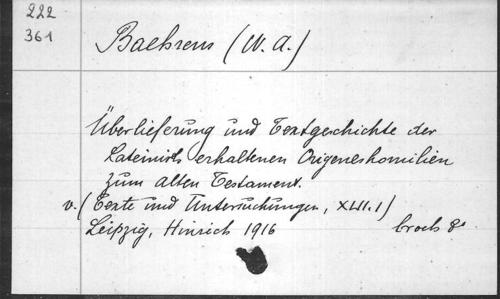 222
361
Baehrens (W. A.)
Überlieferung und Textgeschichte der
Lateinisch erhaltenen Origeneshomilien
zum alten Testament.
v. (Texte und Untersuchungen, XLII.1)
Leipzig, Hinrich 1916 broch 8°